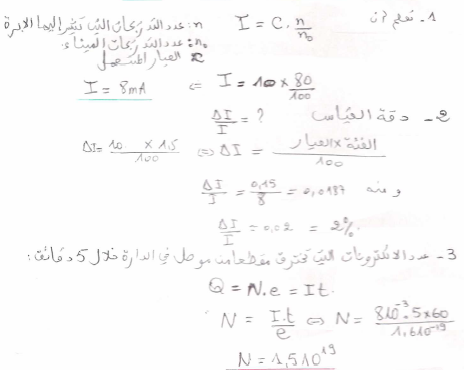 1. نعلم أن I = C. n/n₀ n: عدد التدريجات التي تشير إليها الإبرة
n₀: عدد التدريجات الميناء.
C العيار المستعمل
I = 8mA ⇐ I = 10 × 80/100
2- دقة القياس ΔI/I = ?
ΔI = 10 × 1,5/100 ⇔ ΔI = الفئة × العيار/100
ومنه ΔI/I = 0,15/8 = 0,0187
ΔI/I = 0,02 = 2%
3- عدد الالكترونات التي تخترق مقطعا من موصل في الدارة خلال 5 دقائق:
Q = N.e = I t.
N = I.t/e ⇔ N = 8 10⁻³.5×60/1,6 10⁻¹⁹
N = 1,5 10¹⁹